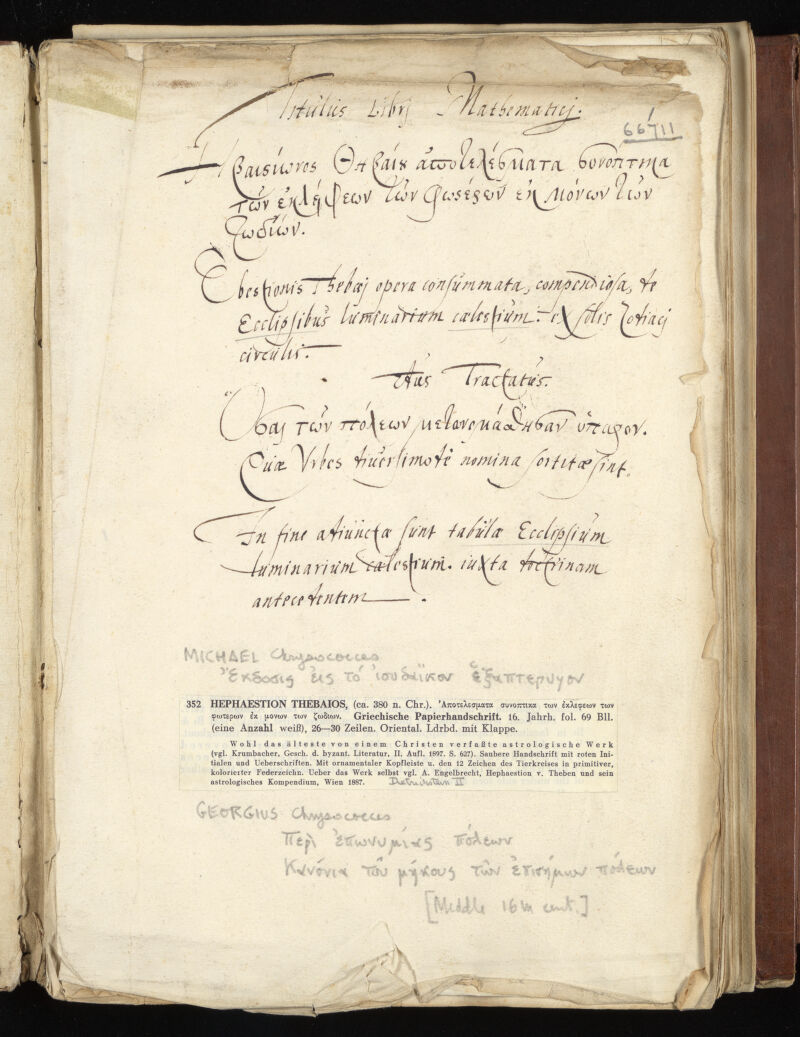 Titulus Libri Mathematici.
66711
Ηβαισίωνος Θηβαίȣ ἀποτελέσματα συνόπτικα
τῶν ἐκλείψεων τῶν φωσέρων ἐκ μόνων τῶν
ζωδίων.
Ebestionis Thebæi opera consummata, compendiosa, de
Ecclipsibus luminarium cælestium. ex solis Zodiaci
circulis.
Tractatus.
Ὅσαι τῶν πόλεων μετονομάσθησαν ὕσαρον.
Quæ Urbes diversimode nomina sortitæ sint.
In fine adiunctæ sunt tabulæ Ecclipsium
luminarium cælestium. iuxta doctrinam
antecedentem.
MICHAEL Chrysococces
Ἔκδοσις εἰς τὸ ἰουδαϊκον ἑξαπτερυγον
352 HEPHAESTION THEBAIOS, (ca. 380 n. Chr.). Ἀποτελεσματα συνοπτικα των ἐκλεφεων των
φωτερων ἐκ μονων των ζωδιων. Griechische Papierhandschrift. 16. Jahrh. fol. 69 Bll.
(eine Anzahl weiß), 26—30 Zeilen. Oriental. Ldrbd. mit Klappe.
Wohl das älteste von einem Christen verfaßte astrologische Werk
(vgl. Krumbacher, Gesch. d. byzant. Literatur, II. Aufl. 1897. S. 627). Saubere Handschrift mit roten Ini-
tialen und Ueberschriften. Mit ornamentaler Kopfleiste u. den 12 Zeichen des Tierkreises in primitiver,
kolorierter Federzeichn. Ueber das Werk selbst vgl. A. Engelbrecht, Hephaestion v. Theben und sein
astrologisches Kompendium, Wien 1887. Dietrichstein II
GEORGIUS Chrysococces
Περὶ ἐπωνυμίας πόλεων
Κανόνια τοῦ μήκους τῶν ἐπισήμων πόλεων
[Middle 16th cent.]